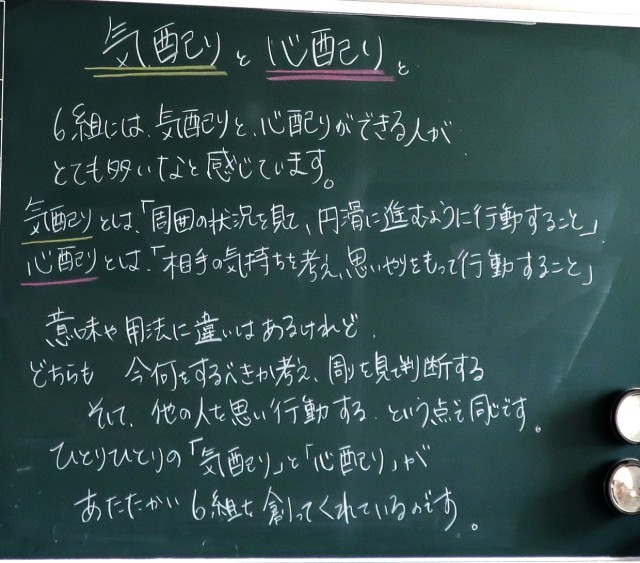 気配りと心配りと
6組には、気配りと、心配りができる人が
とても多いなと感じています。
気配りとは、「周囲の状況を見て、円滑に進むように行動すること」
心配りとは、「相手の気持ちを考え、思いやりをもって行動すること」
意味や用法に違いはあるけれど、
どちらも 今何をするべきか考え、周りを見て判断する
そして、他の人を思い行動する、という点で同じです。
ひとりひとりの「気配り」と「心配り」が
あたたかい6組を創ってくれているのです。